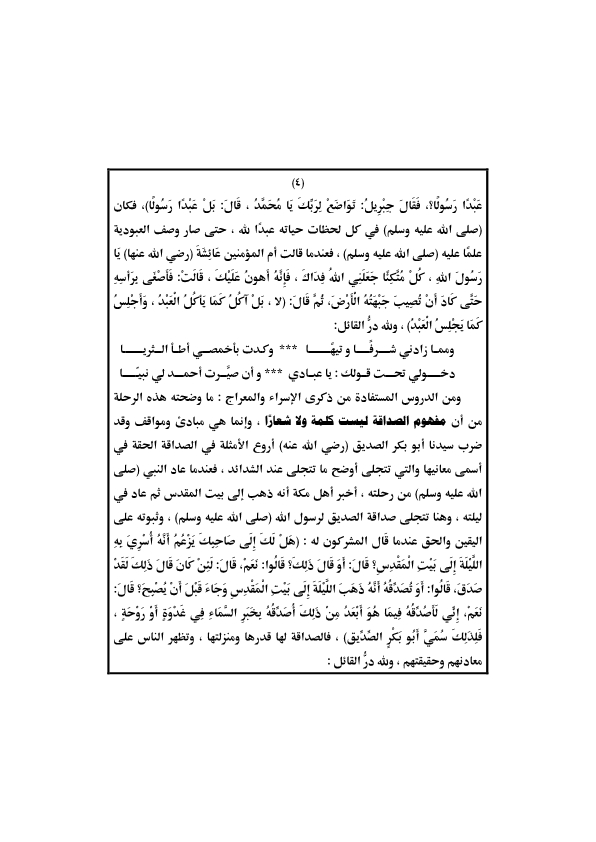 (٤)
عَبْدًا رَسُولًا؟، فَقَالَ جِبْرِيلُ: تَوَاضَعْ لِرَبِّكَ يَا مُحَمَّدُ ، قَالَ: بَلْ عَبْدًا رَسُولًا)، فكان
(صلى الله عليه وسلم) في كل لحظات حياته عبدًا لله ، حتى صار وصف العبودية
علمًا عليه (صلى الله عليه وسلم) ، فعندما قالت أم المؤمنين عَائِشَةَ (رضي الله عنها) يَا
رَسُولَ اللهِ ، كُلْ مُتَّكِئًا جَعَلَنِي اللهُ فِدَاكَ ، فَإِنَّهُ أَهونُ عَلَيْكَ ، قَالَتْ: فَأَصْغَى بِرَأسِهِ
حَتَّى كَادَ أَنْ تُصِيبَ جَبْهَتُهُ الْأَرْضَ، ثُمَّ قَالَ: (لا ، بَلْ آكُلُ كَمَا يَأكُلُ الْعَبْدُ ، وَأَجْلِسُ
كَمَا يَجْلِسُ الْعَبْدُ) ، ولله درُّ القائل:
وممـا زادني شـــرفًــا و تيهًـــــا *** وكـدت بأخمصـي أطـأ الـثريـــــا
دخـــولي تحـت قـولـك : يا عبـادي *** و أن صيَّـرت أحمـد لي نبيّـا
ومن الدروس المستفادة من ذكرى الإسراء والمعراج : ما وضحته هذه الرحلة
من أن مفهوم الصداقة ليست كلمة ولا شعارًا ، وإنما هي مبادئ ومواقف وقد
ضرب سيدنا أبو بكر الصديق (رضي الله عنه) أروع الأمثلة في الصداقة الحقة في
أسمى معانيها والتي تتجلى أوضح ما تتجلى عند الشدائد ، فعندما عاد النبي (صلى
الله عليه وسلم) من رحلته ، أخبر أهل مكة أنه ذهب إلى بيت المقدس ثم عاد في
ليلته ، وهنا تتجلى صداقة الصديق لرسول الله (صلى الله عليه وسلم) ، وثبوته على
اليقين والحق عندما قال المشركون له : (هَلْ لَكَ إِلَى صَاحِبِكَ يَزْعُمُ أَنَّهُ أُسْرِيَ بِهِ
اللَّيْلَةَ إِلَى بَيْتِ الْمَقْدِسِ؟ قَالَ: أَوَ قَالَ ذَلِكَ؟ قَالُوا: نَعَمْ، قَالَ: لَئِنْ كَانَ قَالَ ذَلِكَ لَقَدْ
صَدَقَ، قَالُوا: أَوَ تُصَدِّقُهُ أَنَّهُ ذَهَبَ اللَّيْلَةَ إِلَى بَيْتِ الْمَقْدِسِ وَجَاءَ قَبْلَ أَنْ يُصْبِحَ؟ قَالَ:
نَعَمْ، إِنِّي لَأُصَدِّقُهُ فِيمَا هُوَ أَبْعَدُ مِنْ ذَلِكَ أُصَدِّقُهُ بِخَبَرِ السَّمَاءِ فِي غَدْوَةٍ أَوْ رَوْحَةٍ ،
فَلِذَلِكَ سُمِّيَ أَبُو بَكْرٍ الصِّدِّيقَ) ، فالصداقة لها قدرها ومنزلتها ، وتظهر الناس على
معادنهم وحقيقتهم ، ولله درُّ القائل :